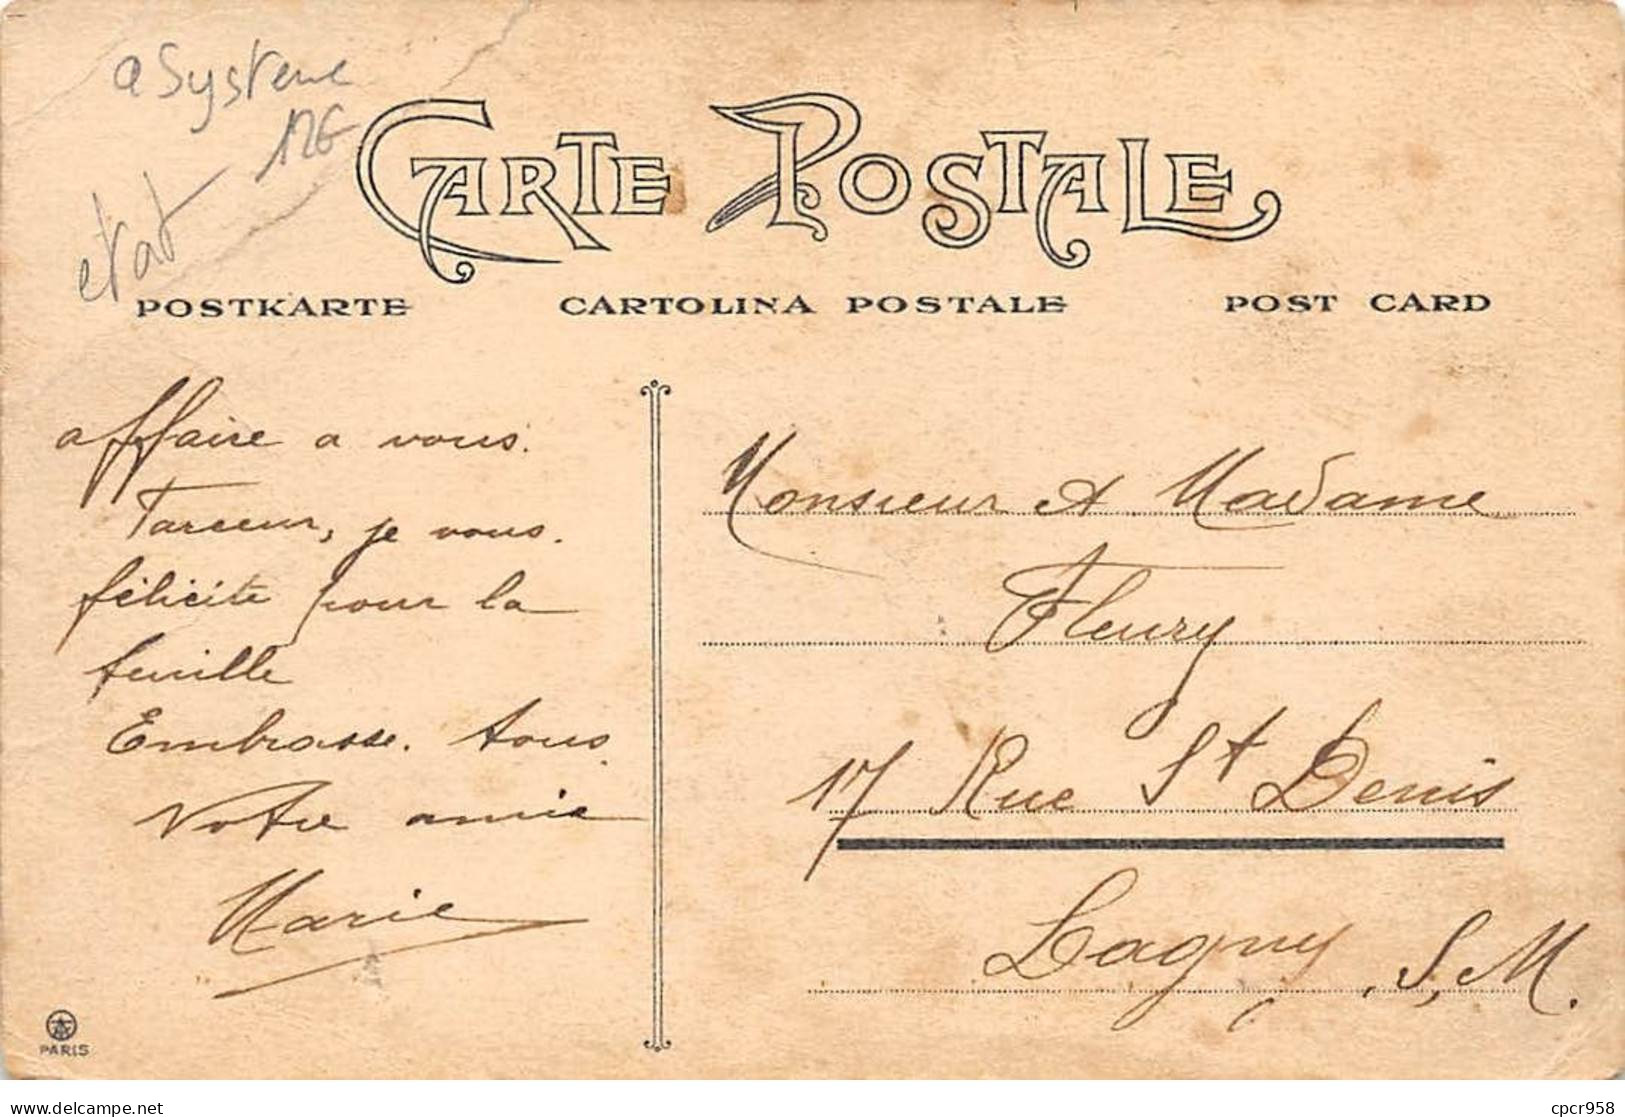 a Systeme
12€
etat
CARTE POSTALE
POSTKARTE CARTOLINA POSTALE POST CARD
affaire a vous.
Farceur, je vous.
félicite pour la
feuille
Embrasse. tous.
Votre amie
Marie
Monsieur et Madame
Fleury
17 Rue St Denis
Lagny, S, M.
PARIS
delcampe.net
cpcr958